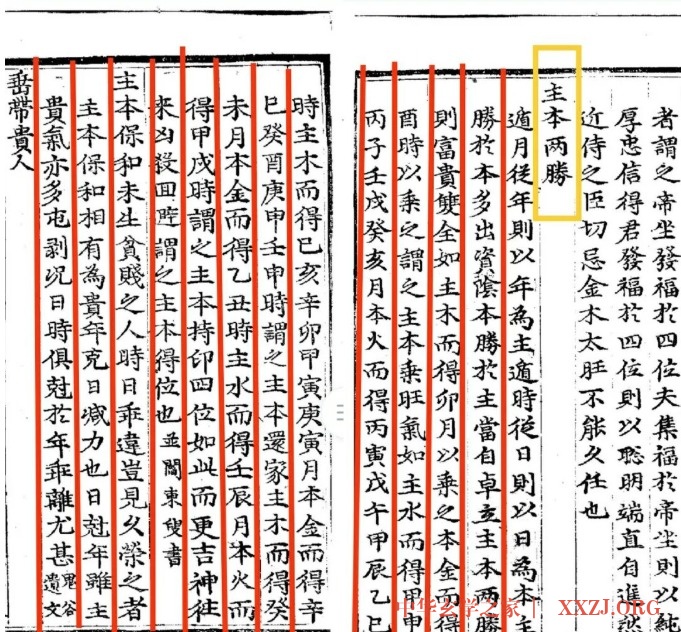 者謂之帝坐發福於四位夫集福於帝坐則以純
厚忠信得君發福於四位則以聡明端直自進談
近侍之臣切忌金木太旺不能久任也
主本两勝
適月從年則以年為主適時從日則以日為本主
勝於本多出資蔭本勝於主當自卓立主本两勝
則富貴雙全如主木而得卯月以乗之本金而得
酉時以乗之謂之主本乗旺氣如主水而得甲申
丙子壬戌癸亥月本火而得丙寅戊午甲辰乙巳
時主木而得巳亥辛卯甲寅庚寅月本金而得辛
巳癸酉庚申壬申時謂之主本還家主木而得癸
未月本金而得乙丑時主水而得壬辰月本火而
得甲戌時謂之主本持印四位如此而更吉神往
来凶殺回避謂之主本得位也並閻東叟書
主本保和未生貧賤之人時日乖違豈見久榮之者
主本保和相有為貴年克日减力也日尅年雖主
貴氣亦多屯剥况日時俱尅於年乖離尤甚鬼谷遺文
帶貴人
中华乡学之家 | XXZJ.ORG